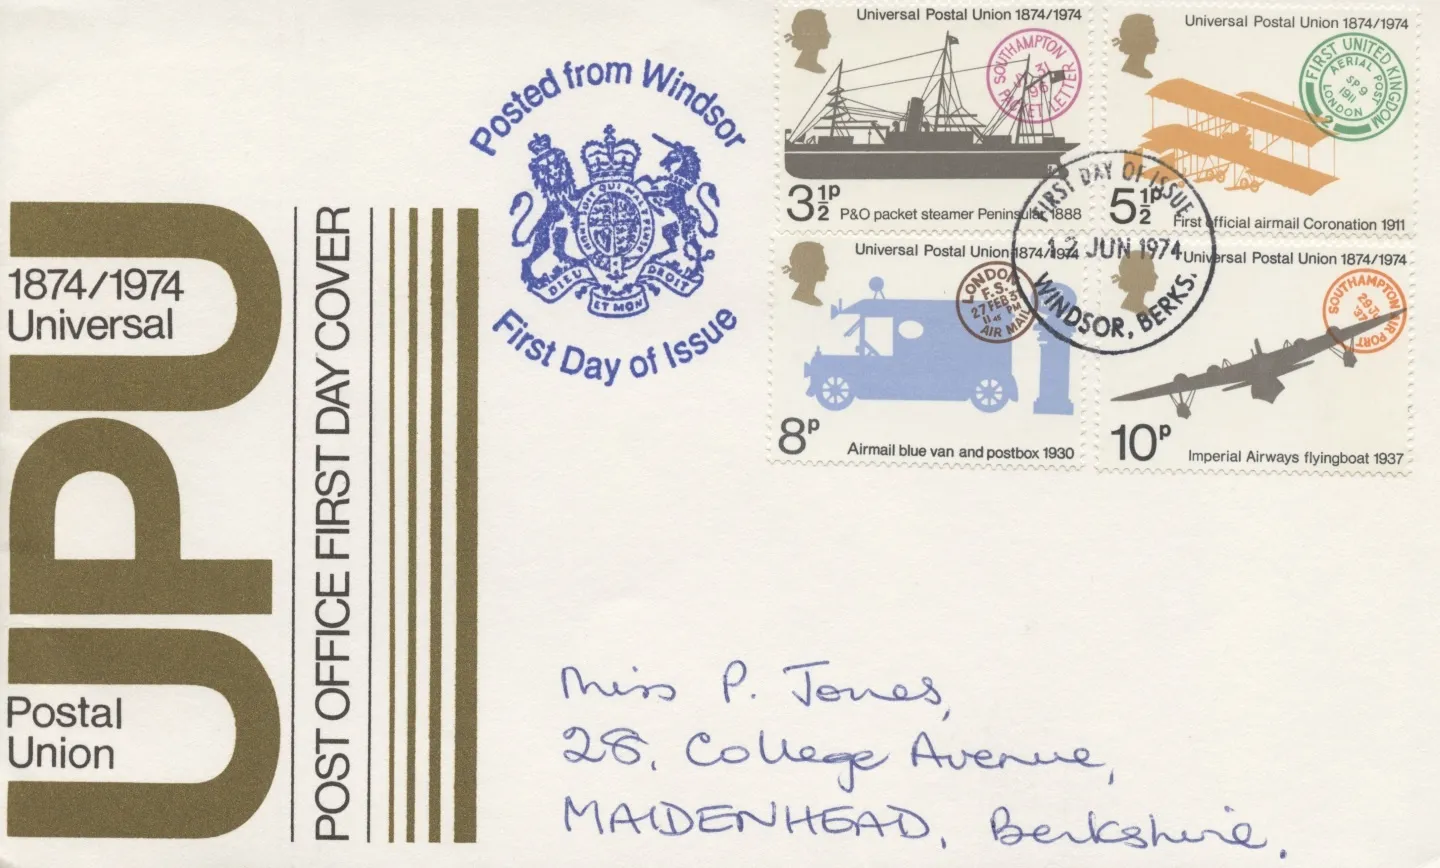 UPU
1874/1974
Universal
Postal
Union
POST OFFICE FIRST DAY COVER
Posted from Windsor
HONI SOIT QUI MAL Y PENSE
DIEU ET MON DROIT
First Day of Issue
Universal Postal Union 1874/1974
SOUTHAMPTON
PACKET LETTER
3½P
P&O packet steamer Peninsular 1888
Universal Postal Union 1874/1974
FIRST UNITED KINGDOM
AERIAL POST
SP 9
1911
LONDON
2
5½P
First official airmail Coronation 1911
Universal Postal Union 1874/1974
LONDON
F.S.
27 FEB 3
11 45 PM
AIR MAIL
8P
Airmail blue van and postbox 1930
Universal Postal Union 1874/1974
SOUTHAMPTON AIR PORT
29 JU
37
10P
Imperial Airways flyingboat 1937
FIRST DAY OF ISSUE
12 JUN 1974
WINDSOR, BERKS.
Miss P. Jones,
28, College Avenue,
MAIDENHEAD, Berkshire.